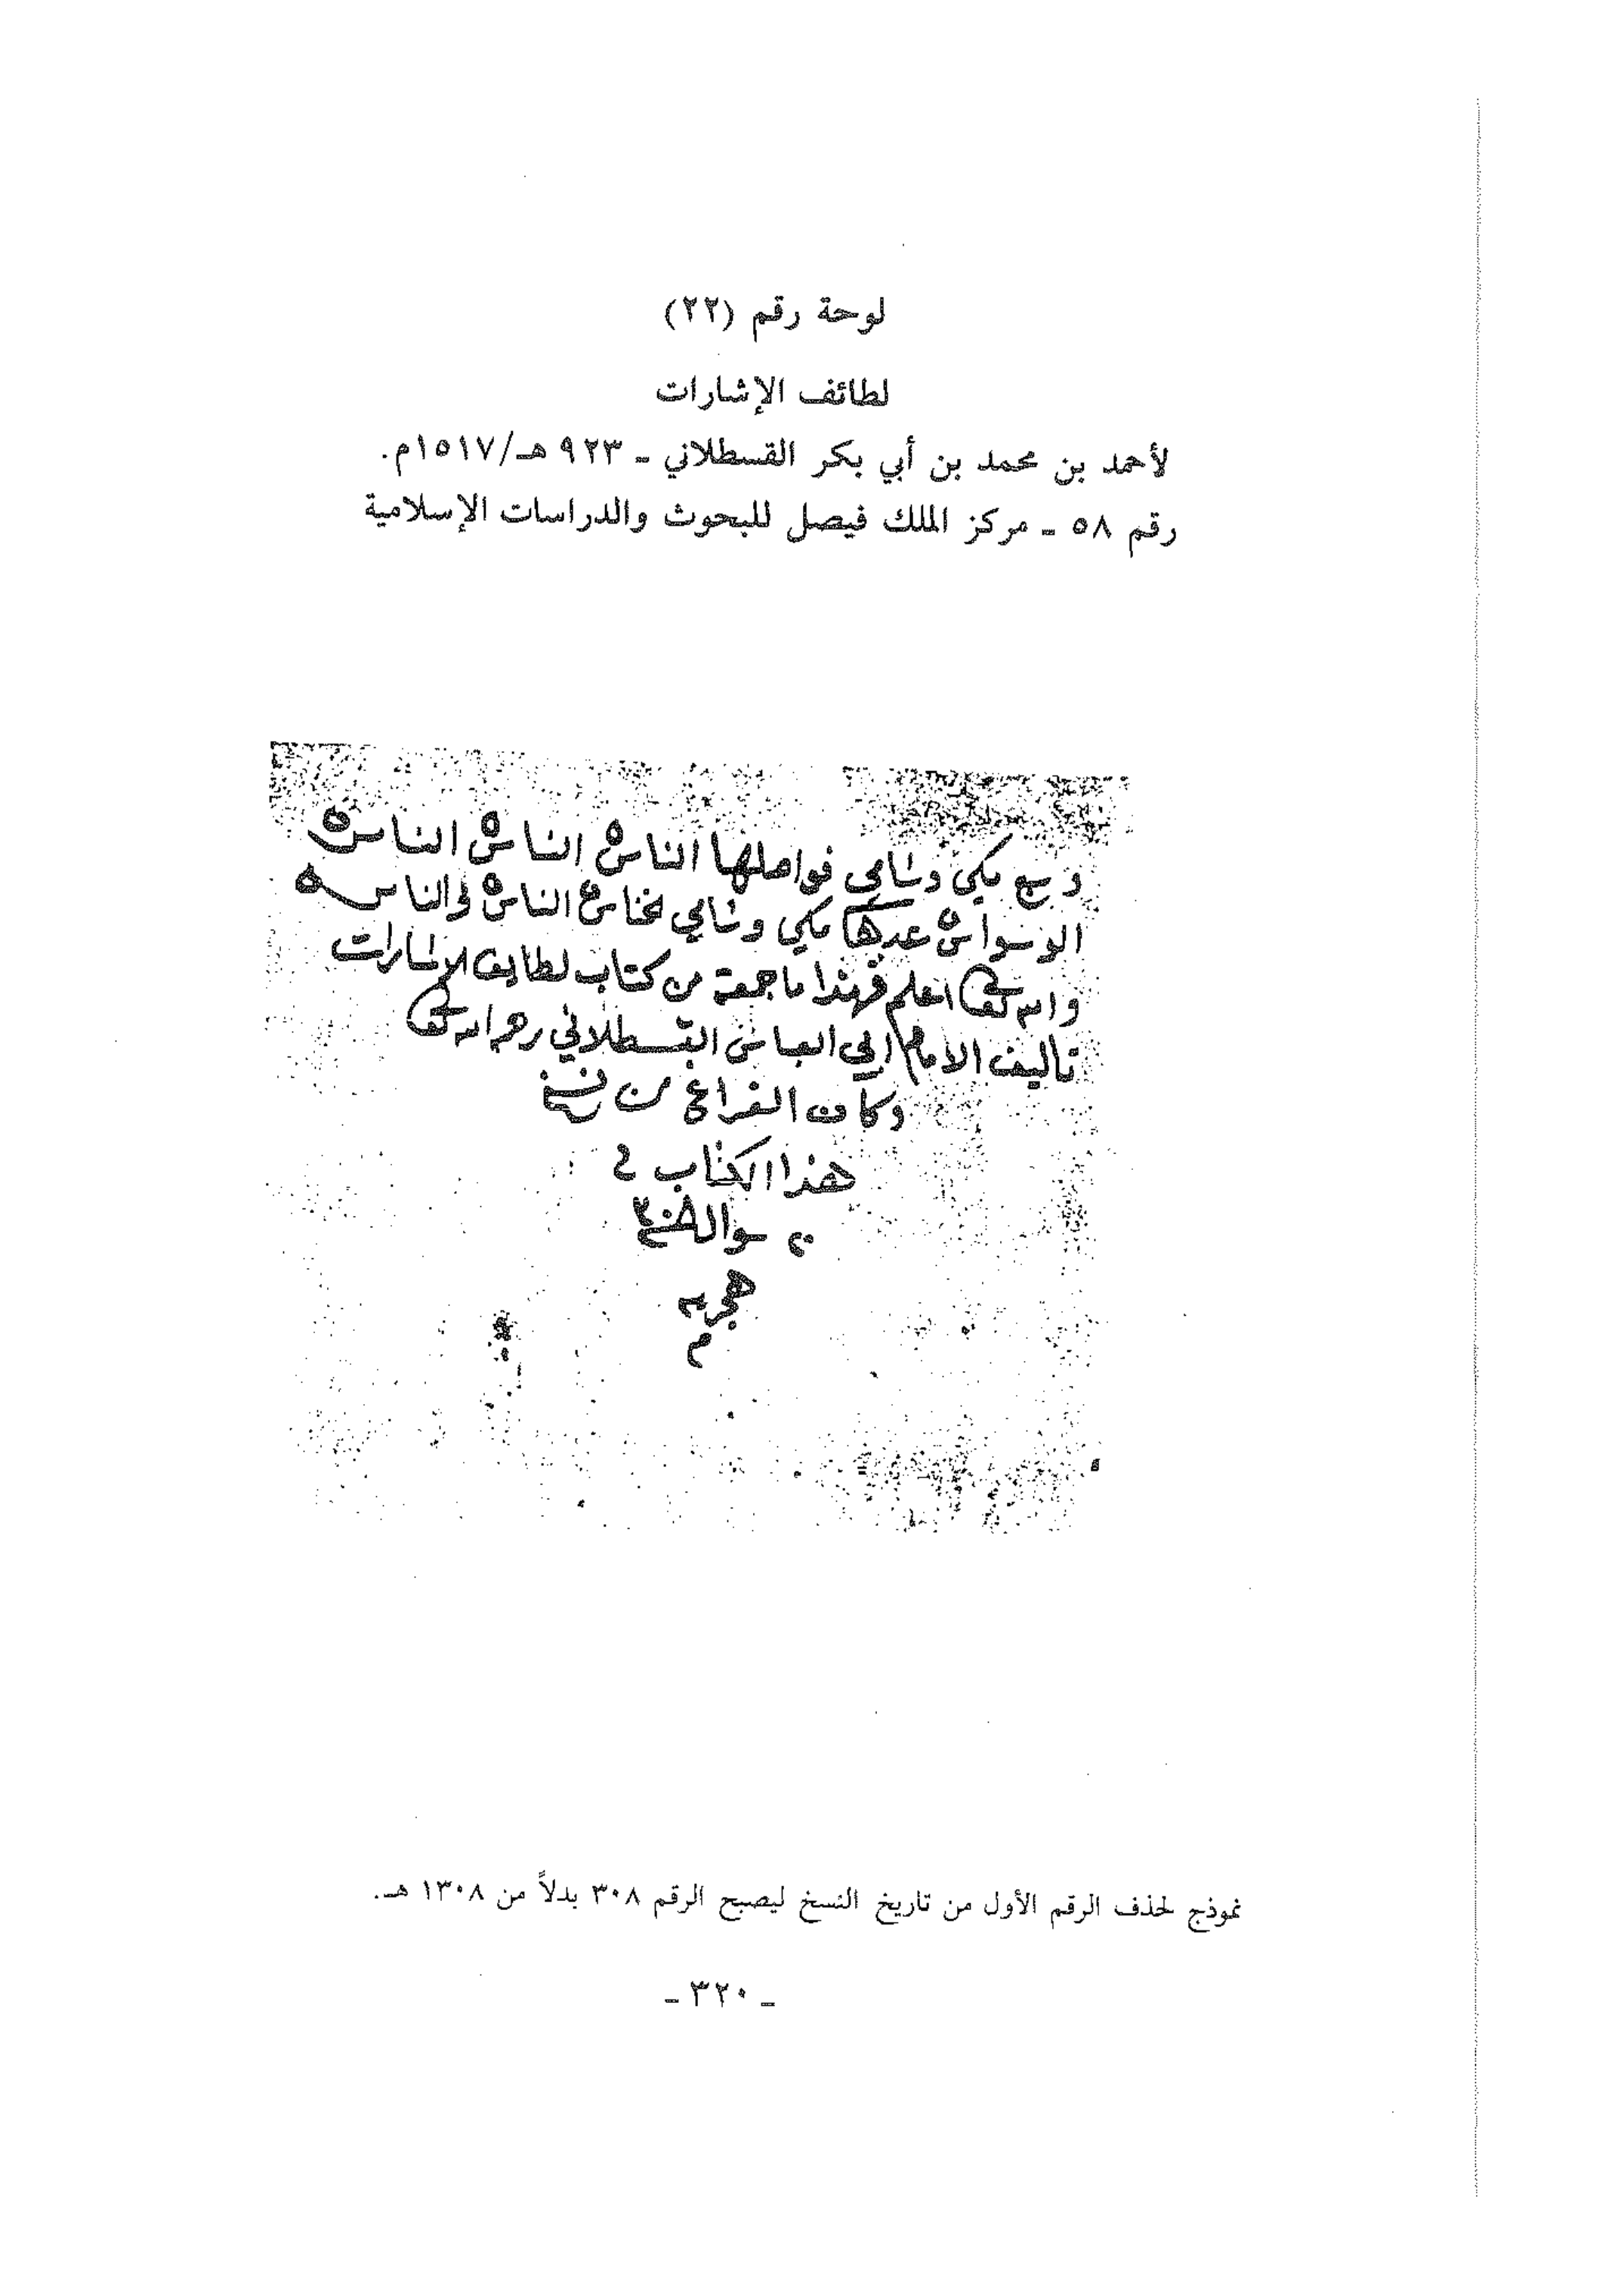 لوحة رقم (٢٢)
لطائف الإشارات
لأحمد بن محمد بن أبي بكر القسطلاني ـ ٩٢٣ هـ/١٥١٧م.
رقم ٥٨ ـ مركز الملك فيصل للبحوث والدراسات الإسلامية
وسبع مكي وشامي فواصلها الناس الناس الناس
الوسواس عدها مكي وشامي لخناس الناس والناس
والله تعالى اعلم فهذا ما جمعة من كتاب لطايف الاشارات
تاليف الامام ابي العباس القسطلاني رحمه الله تعالى
وكان الفراغ من نسخ
هذا الكتاب في
هجريه
م
نموذج لحذف الرقم الأول من تاريخ النسخ ليصبح الرقم ٣٠٨ بدلاً من ١٣٠٨ هـ.
ـ ٣٢٠ ـ